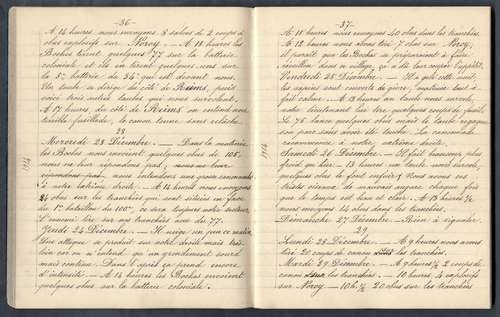 -36-
A 14 heures nous envoyons 8 salves de 2 coups d'
obus explosifs sur Nroy. — A 18 heures les
Boches tirent quelques 77 sur la batterie
coloniale et ils en tirent quelques uns sur
la 5e batterie du 34e qui est devant nous.
Un taube se dirige du côté de Reims, puis
vient trois autres taubes qui nous survolent.
A 17 heures, du côté de Reims on entend une
terrible fusillade, le canon tonne sans relâche.
28
Mercredi 23 Décembre. — Dans la matinée
les Boches nous envoient quelques obus de 105,
nous ne leur répondons pas,
répondons pas nous entendons une grosse canonnade
à notre extrême droite. — A 14 heures nous envoyons
24 obus sur les tranchées qui sont situées en face
du 1er bataillon du 100e, ce dans toujours notre secteur.
L'ennemi tire sur nos tranchées avec du 77.
Jeudi 24 Décembre. — Il neige un peu ce matin.
Une attaque se produit sur notre droite mais très
loin car on n'entend qu'un grondement sourd
mais continu. Dans l'après ça prend encore
d'intensité — A 14 heures les Boches envoient
quelques obus sur la batterie coloniale.
1914
-37-
A 18 heures nous envoyons 40 obus dans les tranchées.
A 12 heures nous avons tiré 7 obus sur Nroy,
il paraît que les Boches se préparaient à faire
réveillon dans ce village, ça a dû leur couper l'appétit.
Vendredi 25 Décembre. — Il a gelé cette nuit,
les sapins sont couverts de givre,
fait calme. — A 3 heures un taube nous survole,
notre lieutenant lui tire quelques coups de fusil.
Le 75 lance quelques obus mais le taube regagne
son parc sans avoir été touché. La canonnade
recommence à notre extrême droite.
Samedi 26 Décembre. — Il fait beaucoup plus
froid qu'hier. — 13 heures un taube nous survole,
quelques obus le font enfuir. Nous avons ces
tristes oiseaux de mauvais augure chaque fois
que le temps est beau et clair. — A 15 heures ½
nous envoyons 14 obus dans les tranchées.
Dimanche 27 Décembre — Rien à signaler.
29
Lundi 28 Décembre. — A 9 heures nous avons
tiré 20 coups de canon dans les tranchées.
Mardi 29 Décembre. — A 9 heures ½ 2 coups de
canon sur les tranchées. — 10 heures 4 explosifs
sur Nroy. — 10h.½ 20 obus sur les tranchées
1914